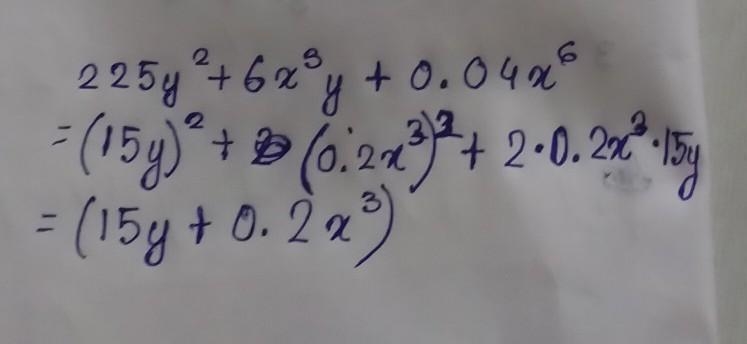 225y² + 6x³y + 0.04x⁶
= (15y)² + (0.2x³)² + 2·0.2x³·15y
= (15y + 0.2x³)